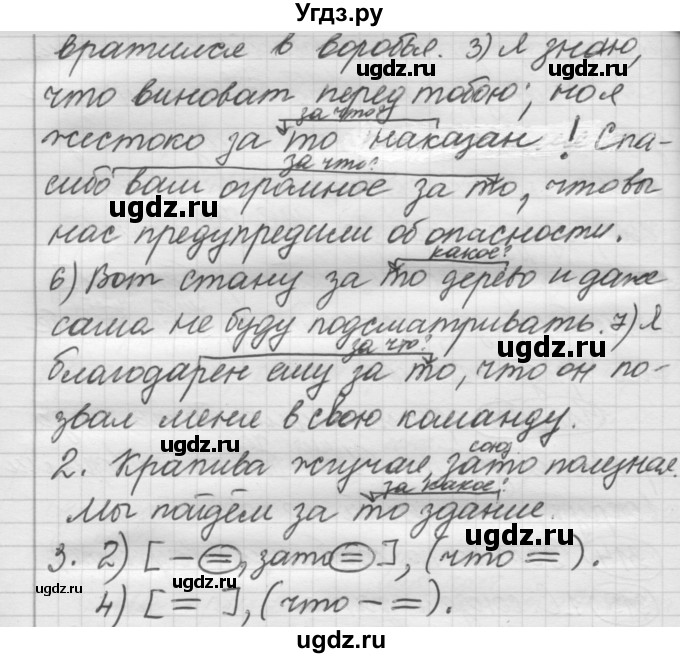 Угдз.ру
вратился в воробья. 3) Я знаю,
что виноват перед тобою; но я
за что?
жестоко за то наказан! Спа-
за что?
сибо вам огромное за то, что вы
нас предупредили об опасности.
какое?
6) Вот стану за то дерево и даже
сама не буду подсматривать. 7) Я
за что?
благодарен ему за то, что он по-
звал меня в свою команду.
союз
2. Крапива жгучая, зато полезная.
за какое?
Мы пойдём за то здание.
3. 2) [ - =, зато = ], (что =).
4) [ = ], (что - =).
ugdz.ru
ugdz.ru
ugdz.ru
ugdz.ru
ugdz.ru
ugdz.ru
ugdz.ru
ugdz.ru
ugdz.ru
ugdz.ru
ugdz.ru